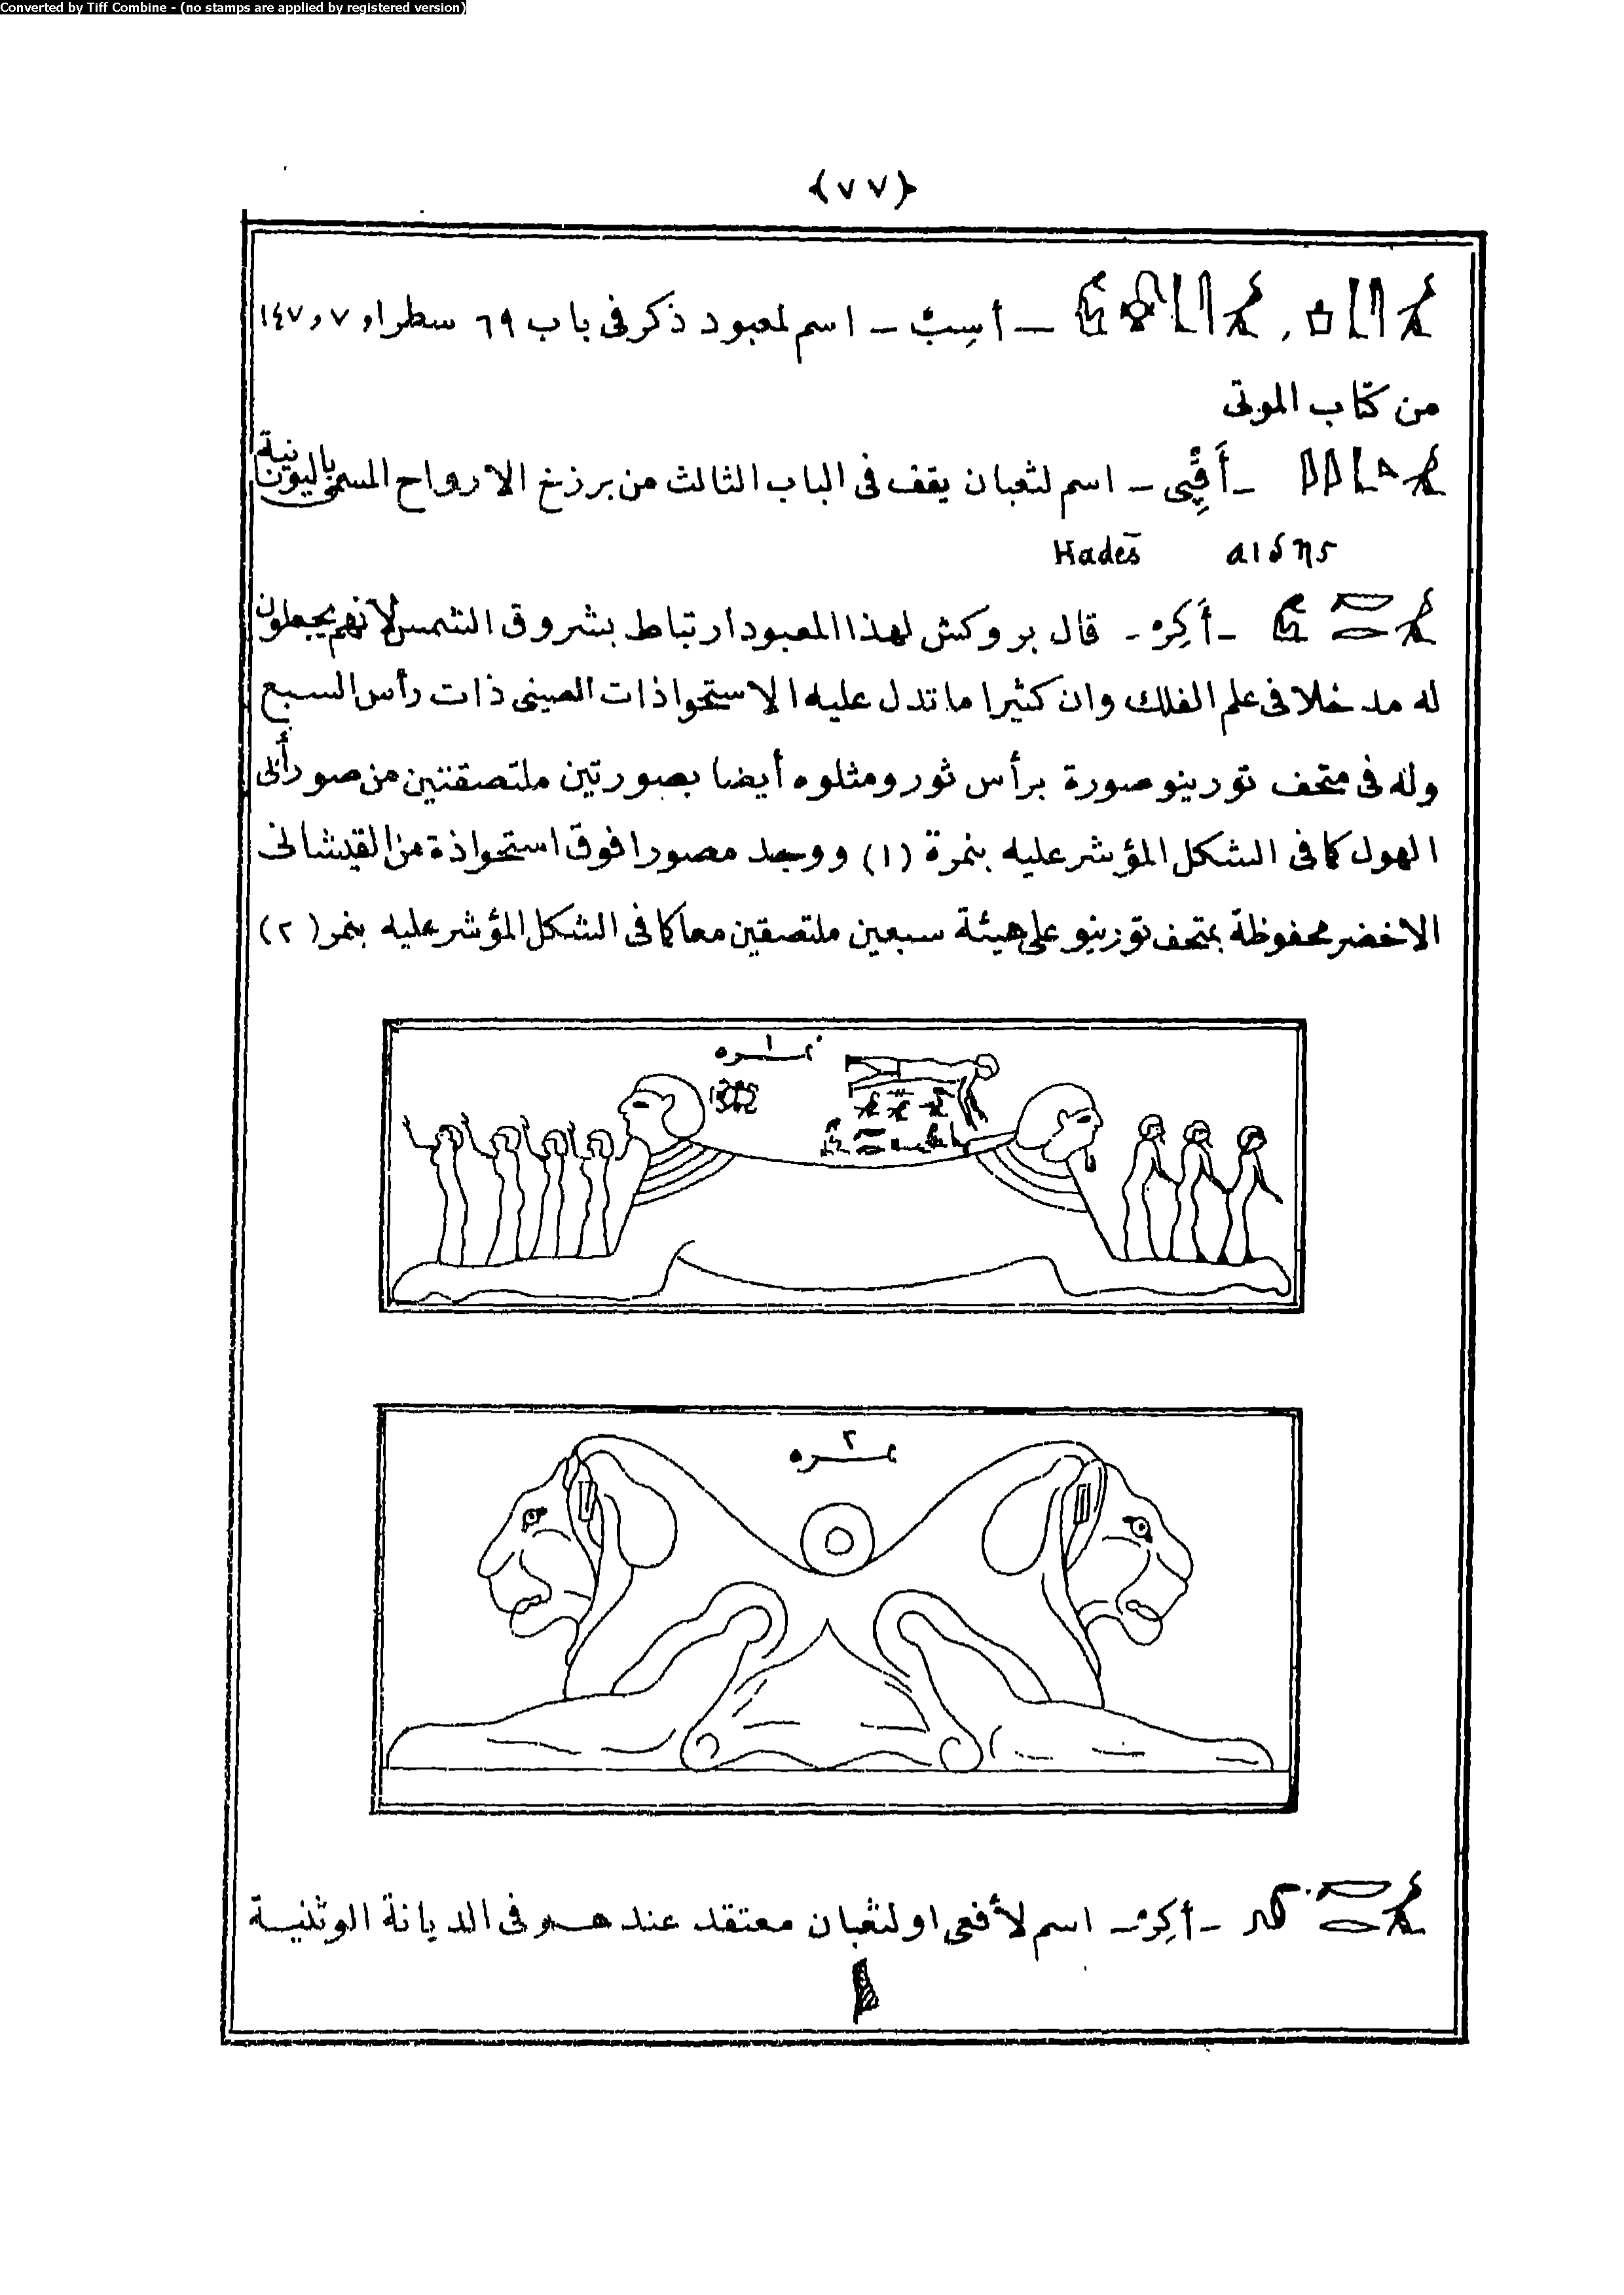 Converted by Tiff Combine - (no stamps are applied by registered version)
﴿٧٧﴾
— أسِبْ — اسم لمعبود ذكر فى باب ٦٩ سطر ١و ٧و ١٤٧
من كتاب الموتى
— أَقِبِى — اسم لثعبان يقف فى الباب الثالث من برزخ الارواح المسمى باليونانية
Hadeš αιδης
— أَكِرْ — قال بروكش لهذا المعبود ارتباط بشروق الشمس لأنهم يجعلون
له مدخلا فى علم الفلك وان كثيرا ما تدل عليه الاستحواذات العينى ذات رأس السبع
وله فى متحف تورينو صورة برأس ثور ومثلوه أيضا بصورتين ملتصقتين من صور أبى
الهول كما فى الشكل المؤشر عليه بنمرة (١) ووجد مصورا فوق استحواذة من القيشانى
الاخضر محفوظة بمتحف تورينو على هيئة سبعين ملتصقين معا كما فى الشكل المؤشر عليه بنمر (٢)
نمره ١
نمره ٢
— أكِرْ — اسم لأفعى او لثعبان معتقد عندهم فى الديانة الوثنية